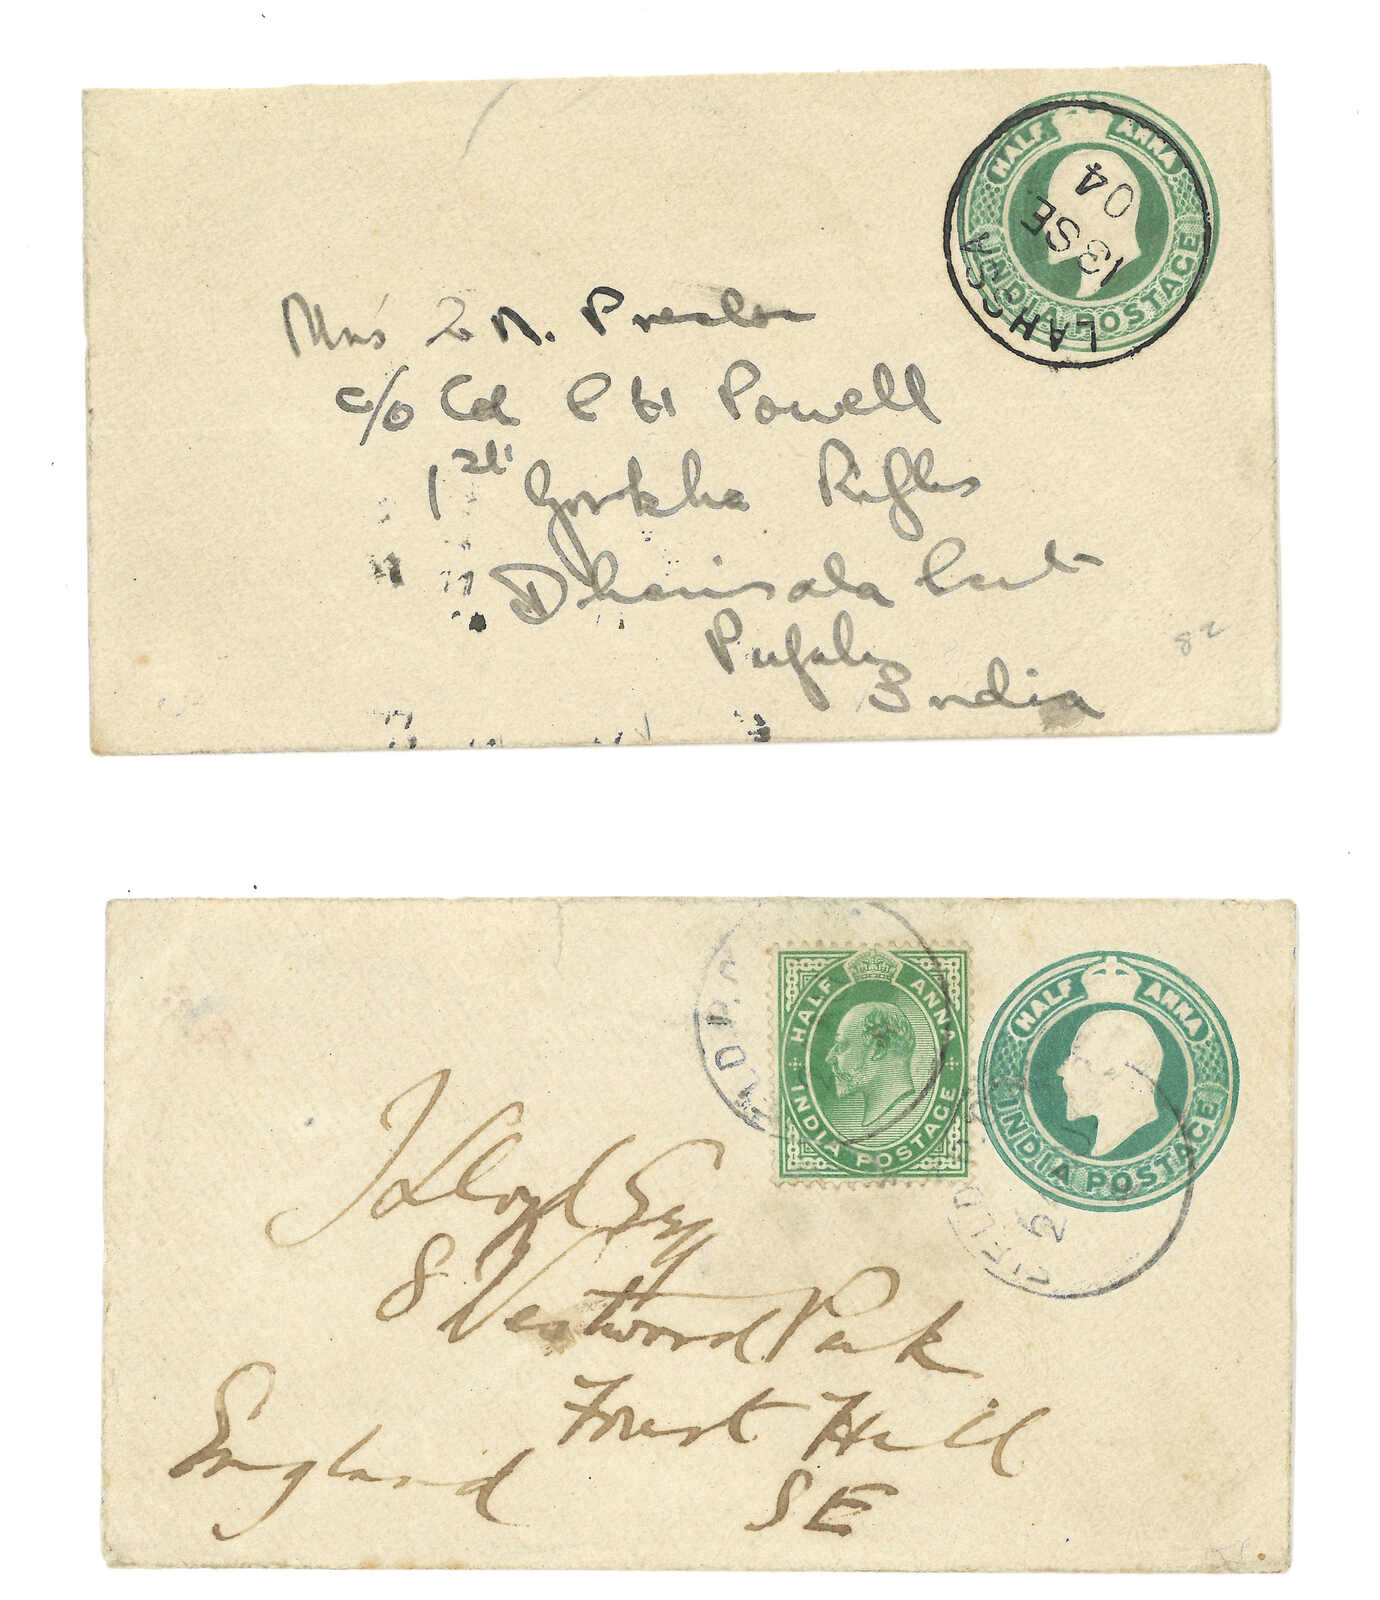 HALF ANNA
INDIA POSTAGE
LAHSSA
13 SE
04
Mrs N. Preston
c/o Col Powell
1st Goorkha Rifles
Dharmsala Cant
Punjab
India
82
HALF ANNA
INDIA POSTAGE
HALF ANNA
INDIA POSTAGE
FIELD
Lloyd Esq
8 Westwood Park
Forest Hill
SE
England